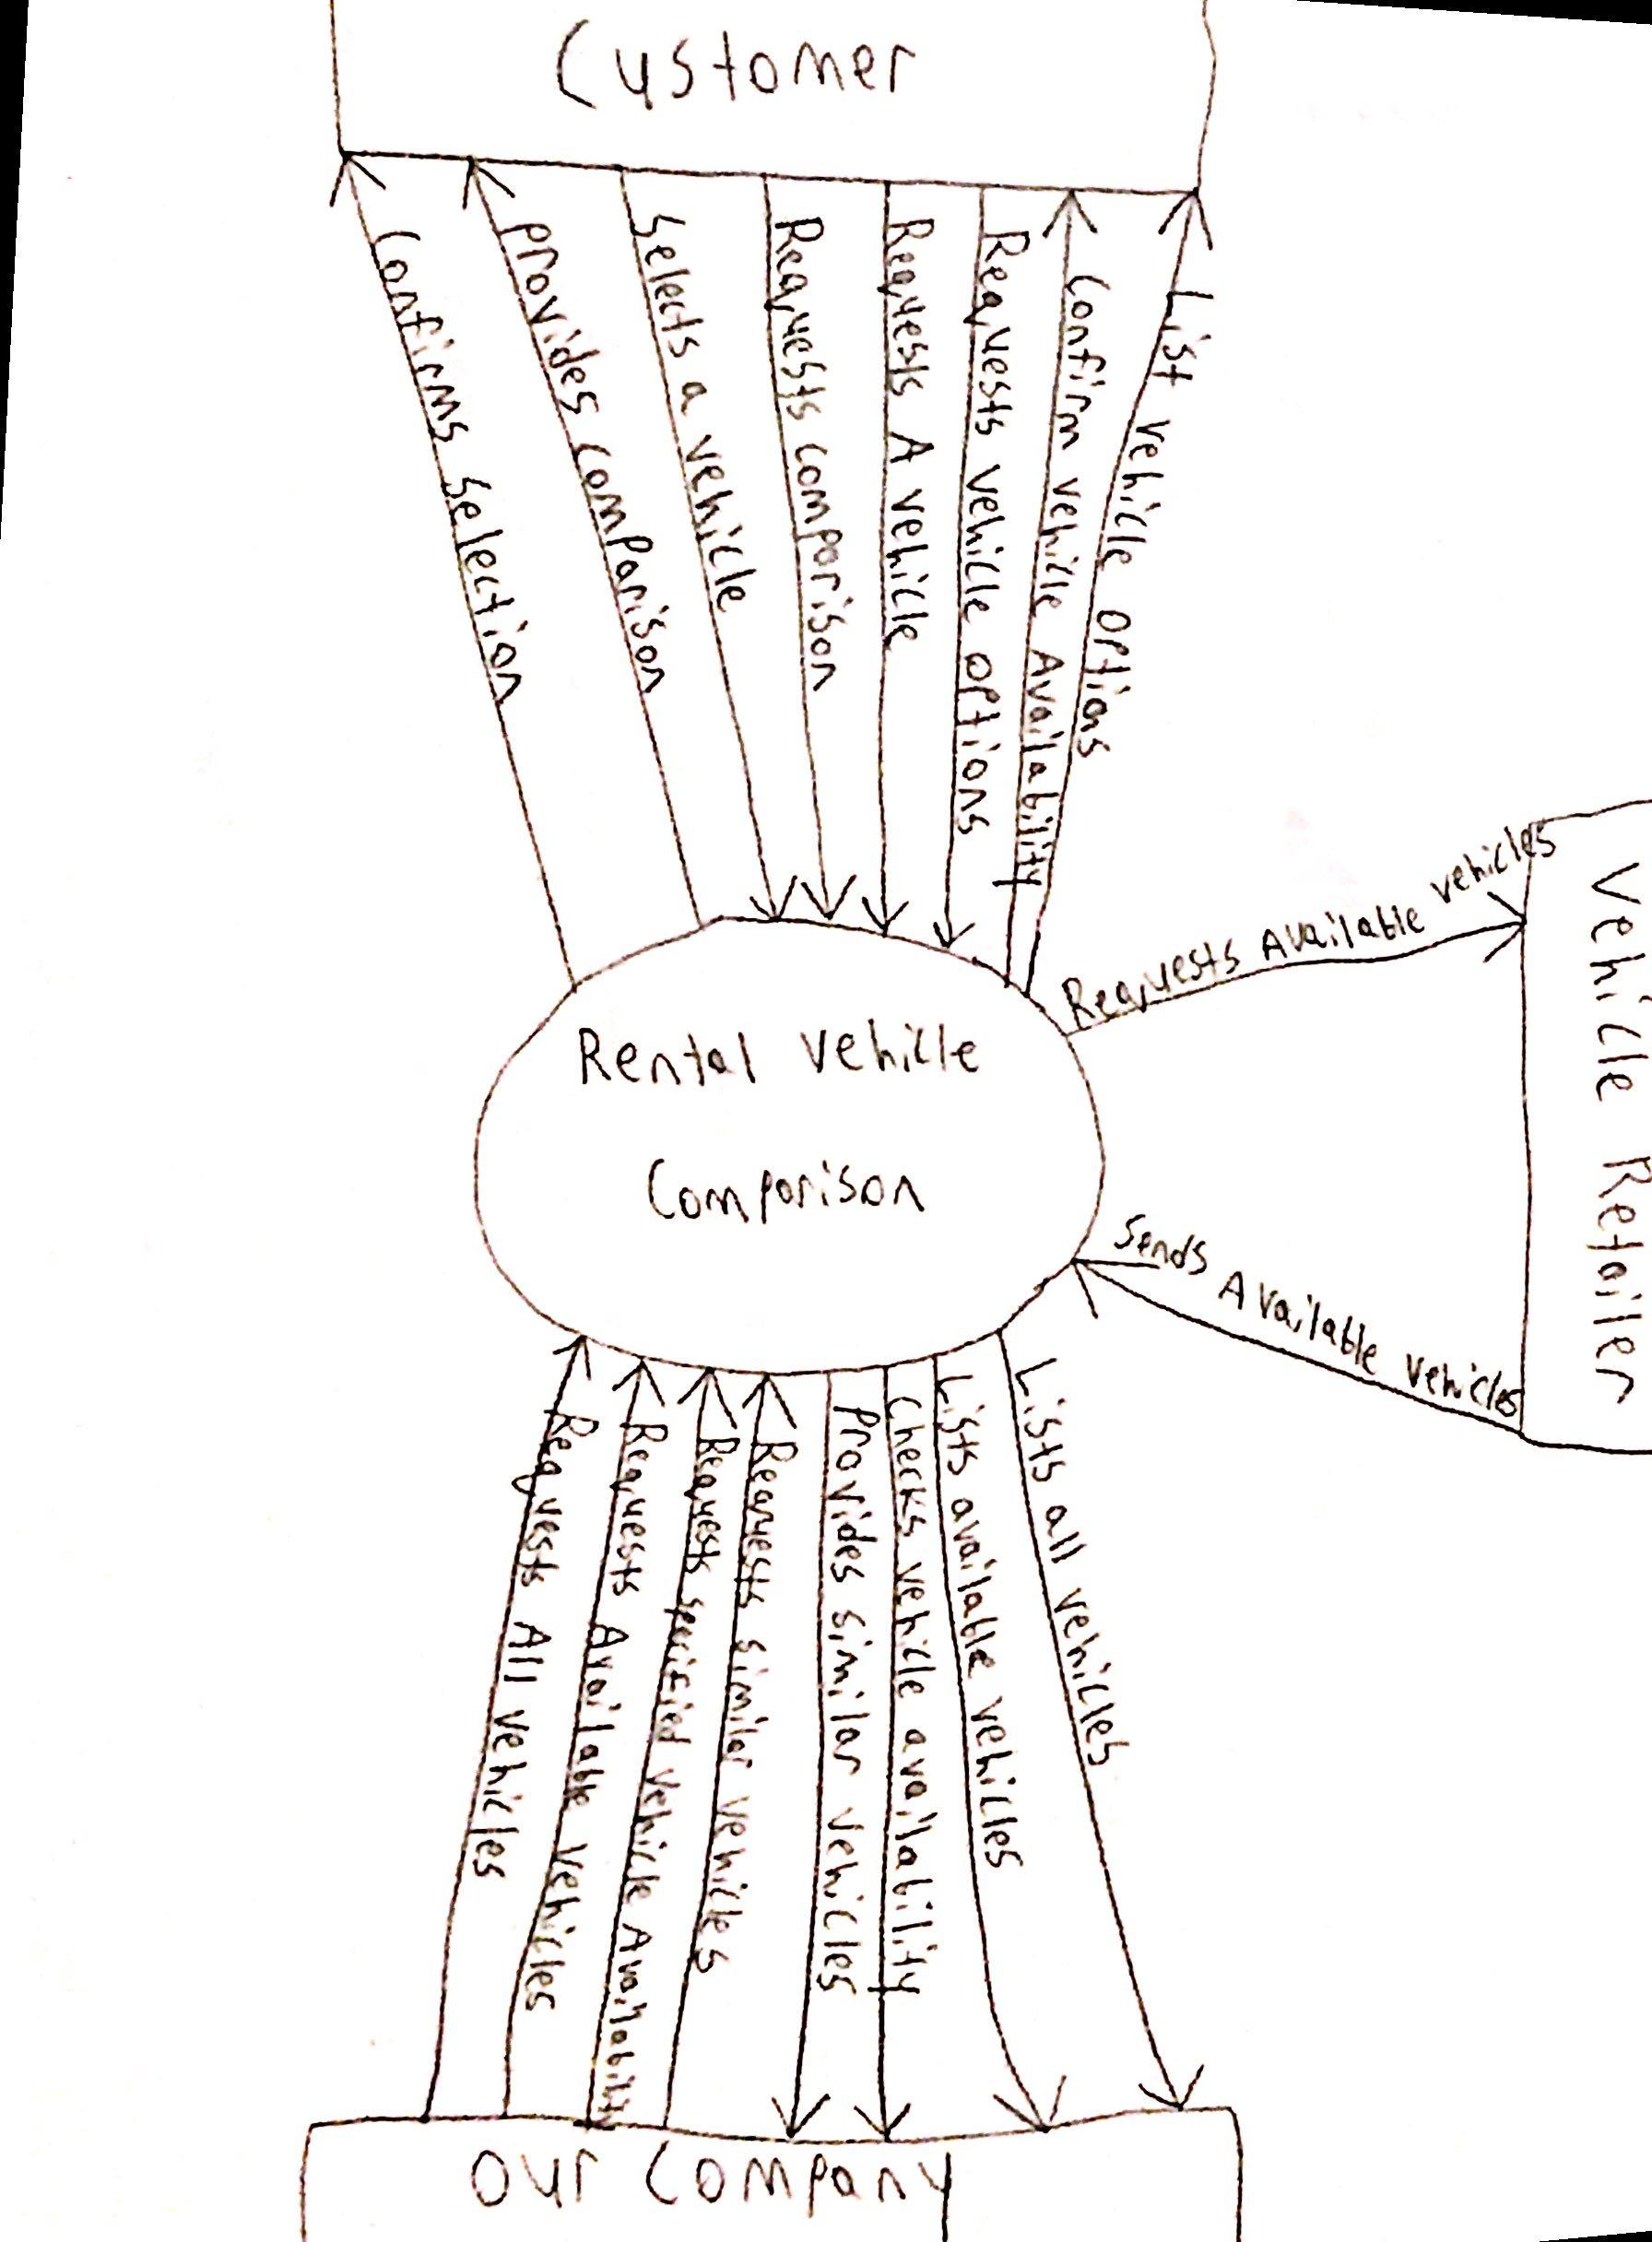 Customer
Confirms selection
Provides comparison
Selects a vehicle
Requests comparison
Requests A vehicle
Requests vehicle options
Confirm vehicle Availability
List vehicle options
Requests Available vehicles
Vehicle Retailer
Sends Available Vehicles
Rental Vehicle
Comparison
Requests All Vehicles
Requests Available Vehicles
Requests specified Vehicle Availability
Requests similar vehicles
Provides similar vehicles
Checks vehicle availability
Lists available vehicles
Lists all vehicles
Our Company